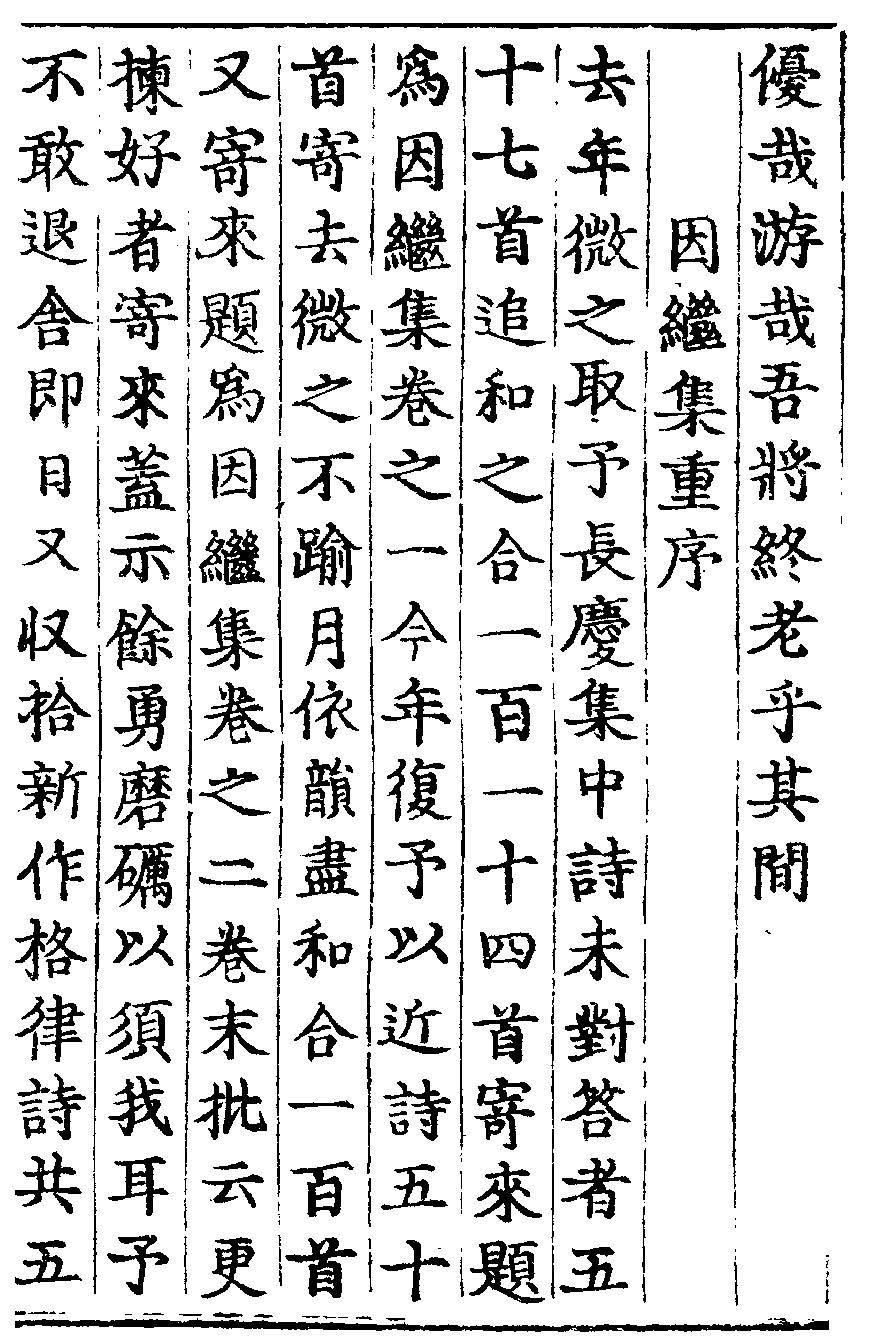 優哉游哉吾將終老乎其間
因繼集重序
去年微之取予長慶集中詩未對答者五
十七首追和之合一百一十四首寄來題
爲因繼集卷之一今年復予以近詩五十
首寄去微之不踰月依韻盡和合一百首
又寄來題爲因繼集卷之二卷末批云更
揀好者寄來蓋示餘勇磨礪以須我耳予
不敢退舍即日又収拾新作格律詩共五